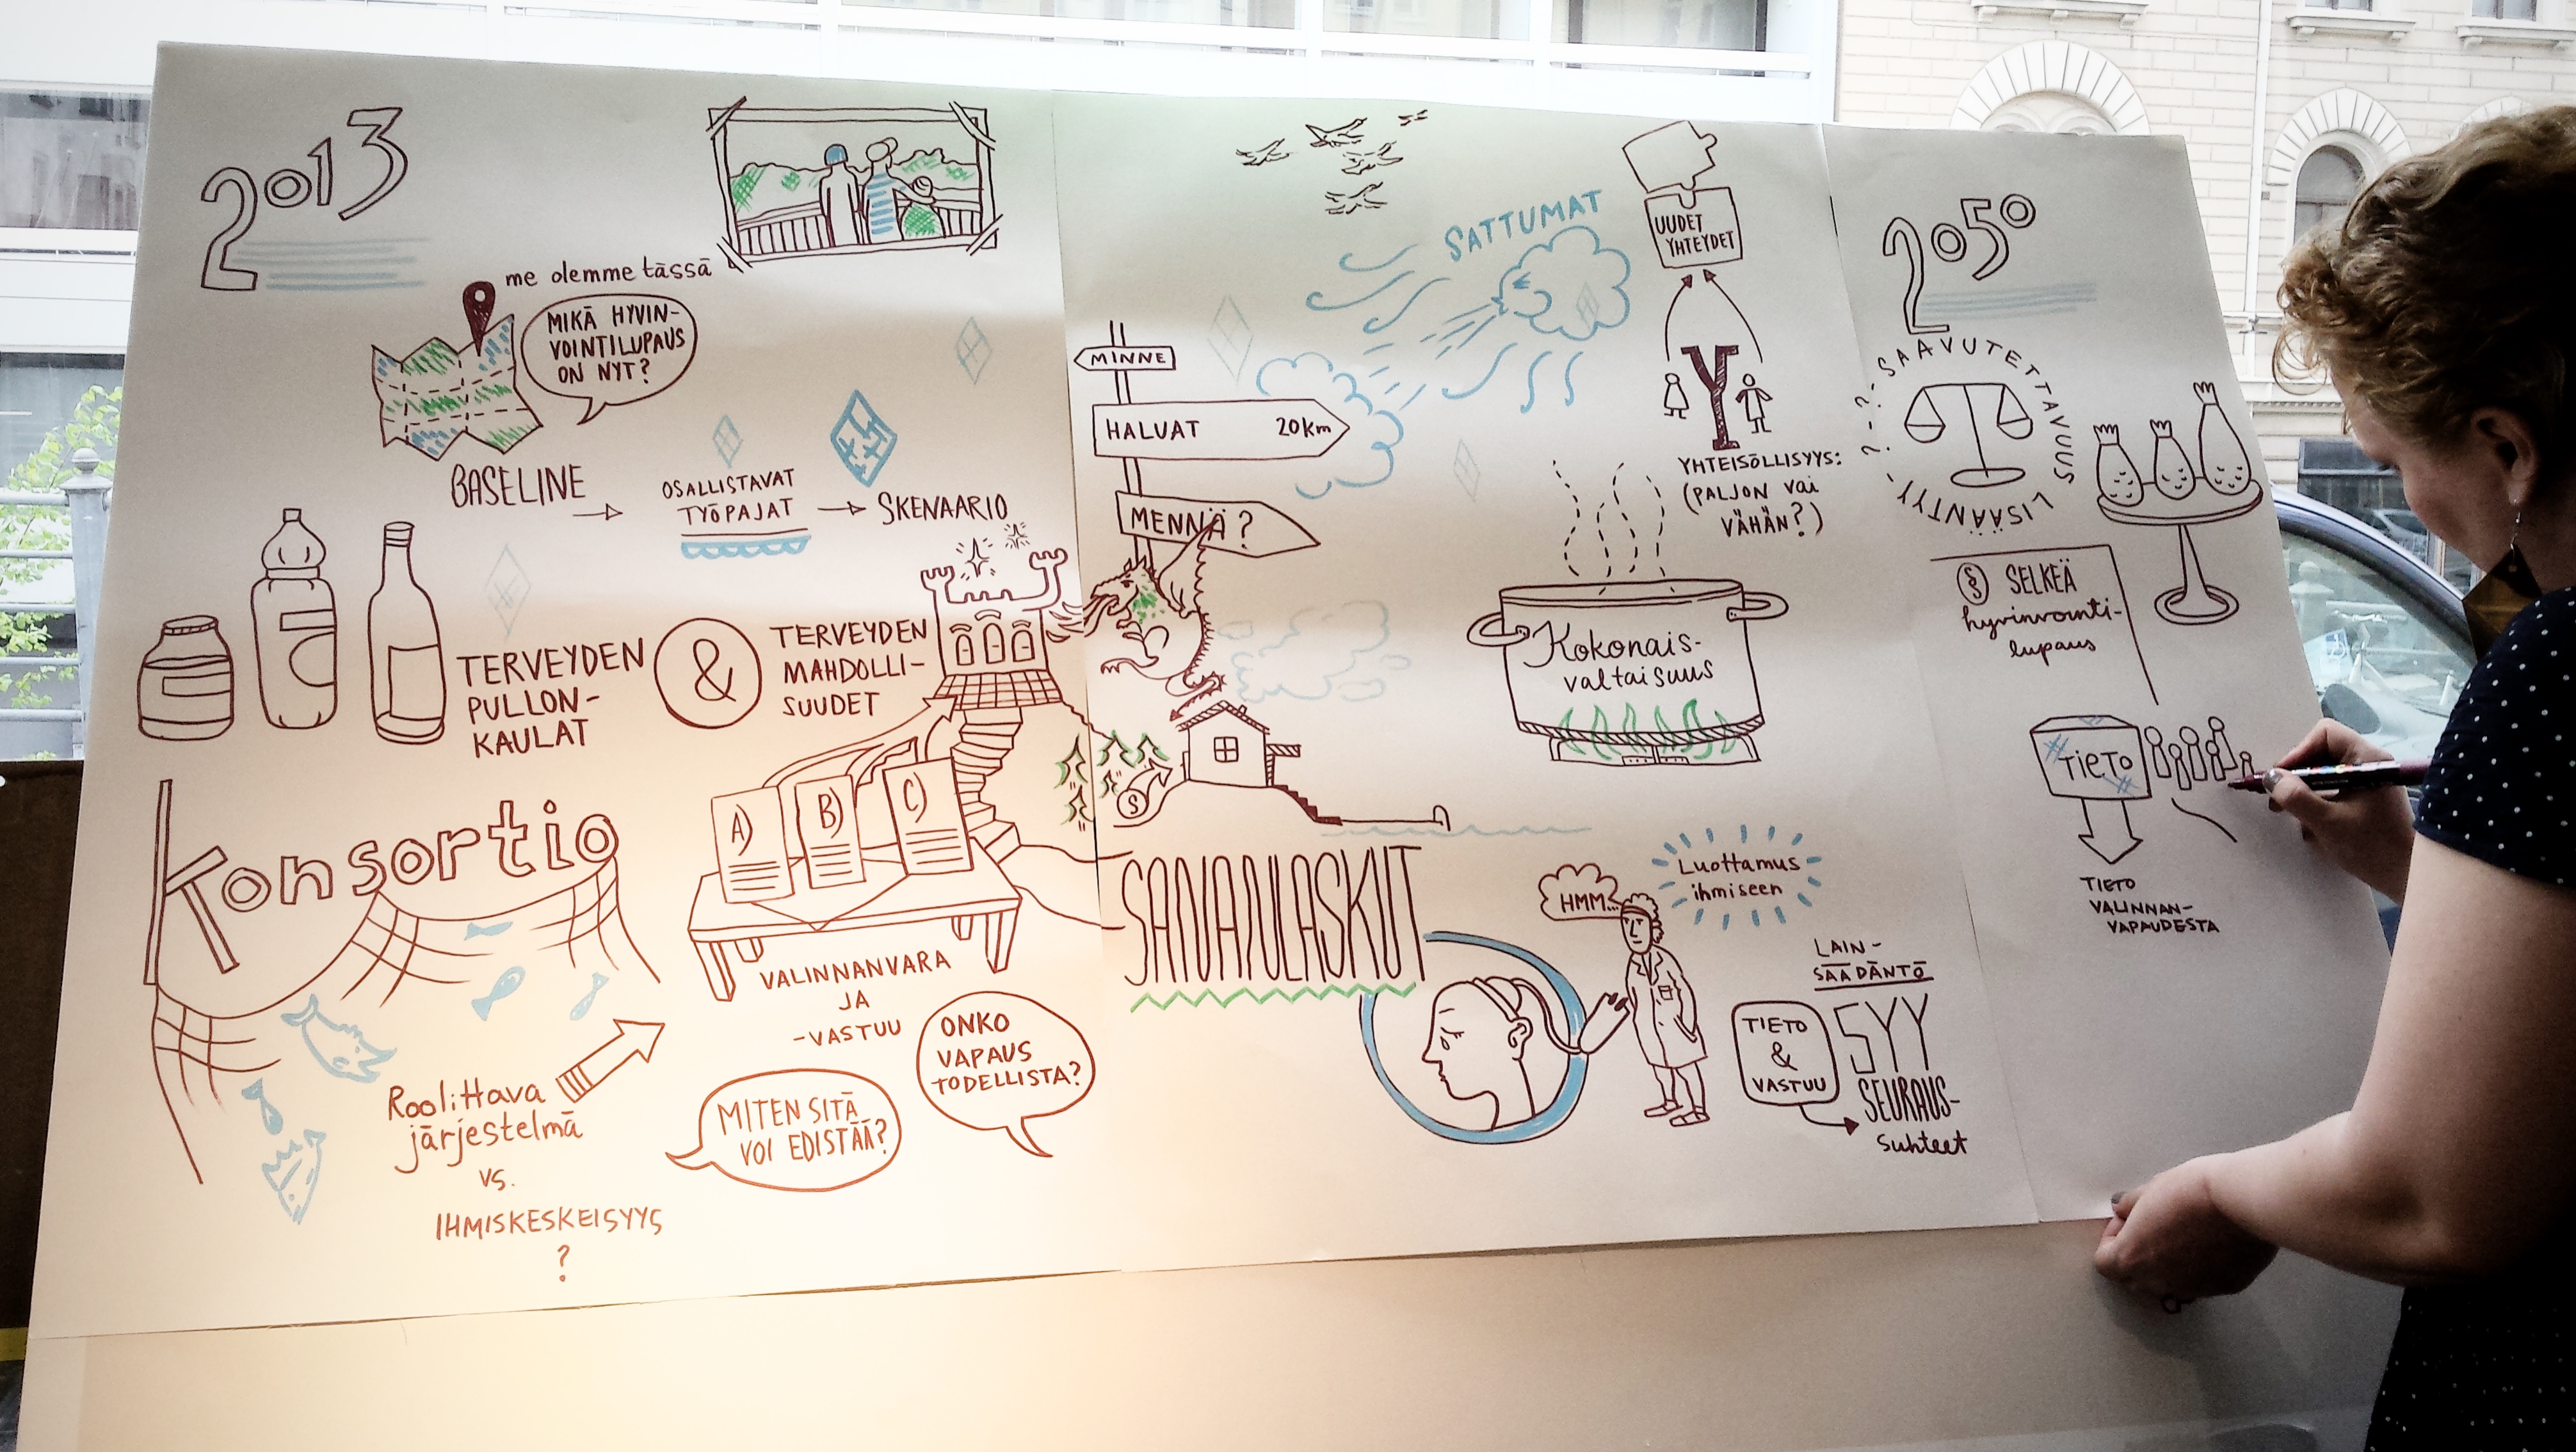 2013
me olemme tässä
MIKÄ HYVIN-
VOINTILUPAUS
ON NYT?
BASELINE
OSALLISTAVAT
TYÖPAJAT
SKENAARIO
TERVEYDEN
PULLON-
KAULAT
&
TERVEYDEN
MAHDOLLI-
SUUDET
Konsortio
A)
B)
C)
VALINNANVARA
JA
-VASTUU
ONKO
VAPAUS
TODELLISTA?
MITEN SITÄ
VOI EDISTÄÄ?
Roolittava
järjestelmä
vs.
IHMISKESKEISYYS
?
MINNE
HALUAT 20km
MENNÄ?
SATTUMAT
UUDET
YHTEYDET
Y
YHTEISÖLLISYYS:
(PALJON vai
VÄHÄN?)
Kokonais-
valtaisuus
§
SANANLASKUT
HMM...
Luottamus
ihmiseen
LAIN-
SÄÄDÄNTÖ
TIETO
&
VASTUU
SYY
SEURAUS-
suhteet
2050
?-?-SAAVUTETTAVUUS
LISÄÄNTYY-
§ SELKEÄ
hyvinvointi-
lupaus
TIETO
TIETO
VALINNAN-
VAPAUDESTA